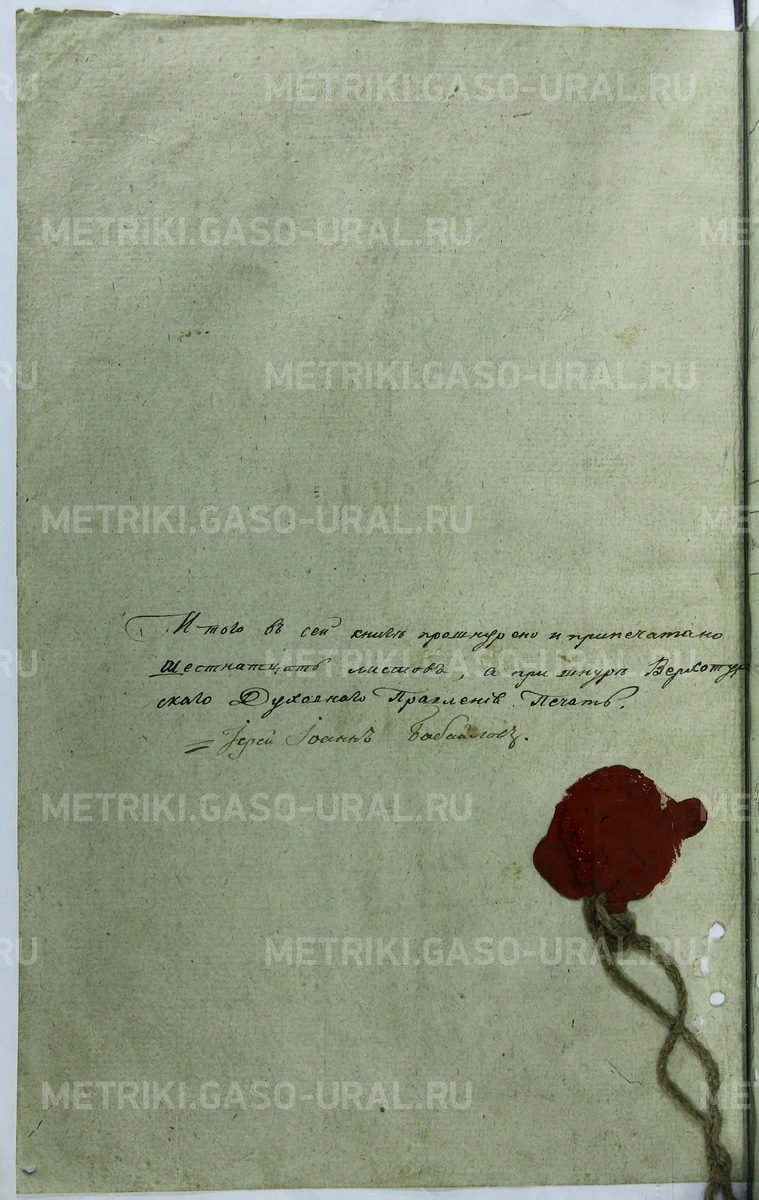 METRIKI.GASO-URAL.RU
METRIKI.GASO-URAL.RU
METRIKI.GASO-URAL.RU
METRIKI.GASO-URAL.RU
Итого въ сей книге прошнурено и припечатано
шестнатцать листовъ, а при шнуре Верхотур
скаго Духовнаго Правленія Печать.
Іерей Іоаннъ Бабайловъ.
METRIKI.GASO-URAL.RU
METRIKI.GASO-URAL.RU
METRIKI.GASO-URAL.RU